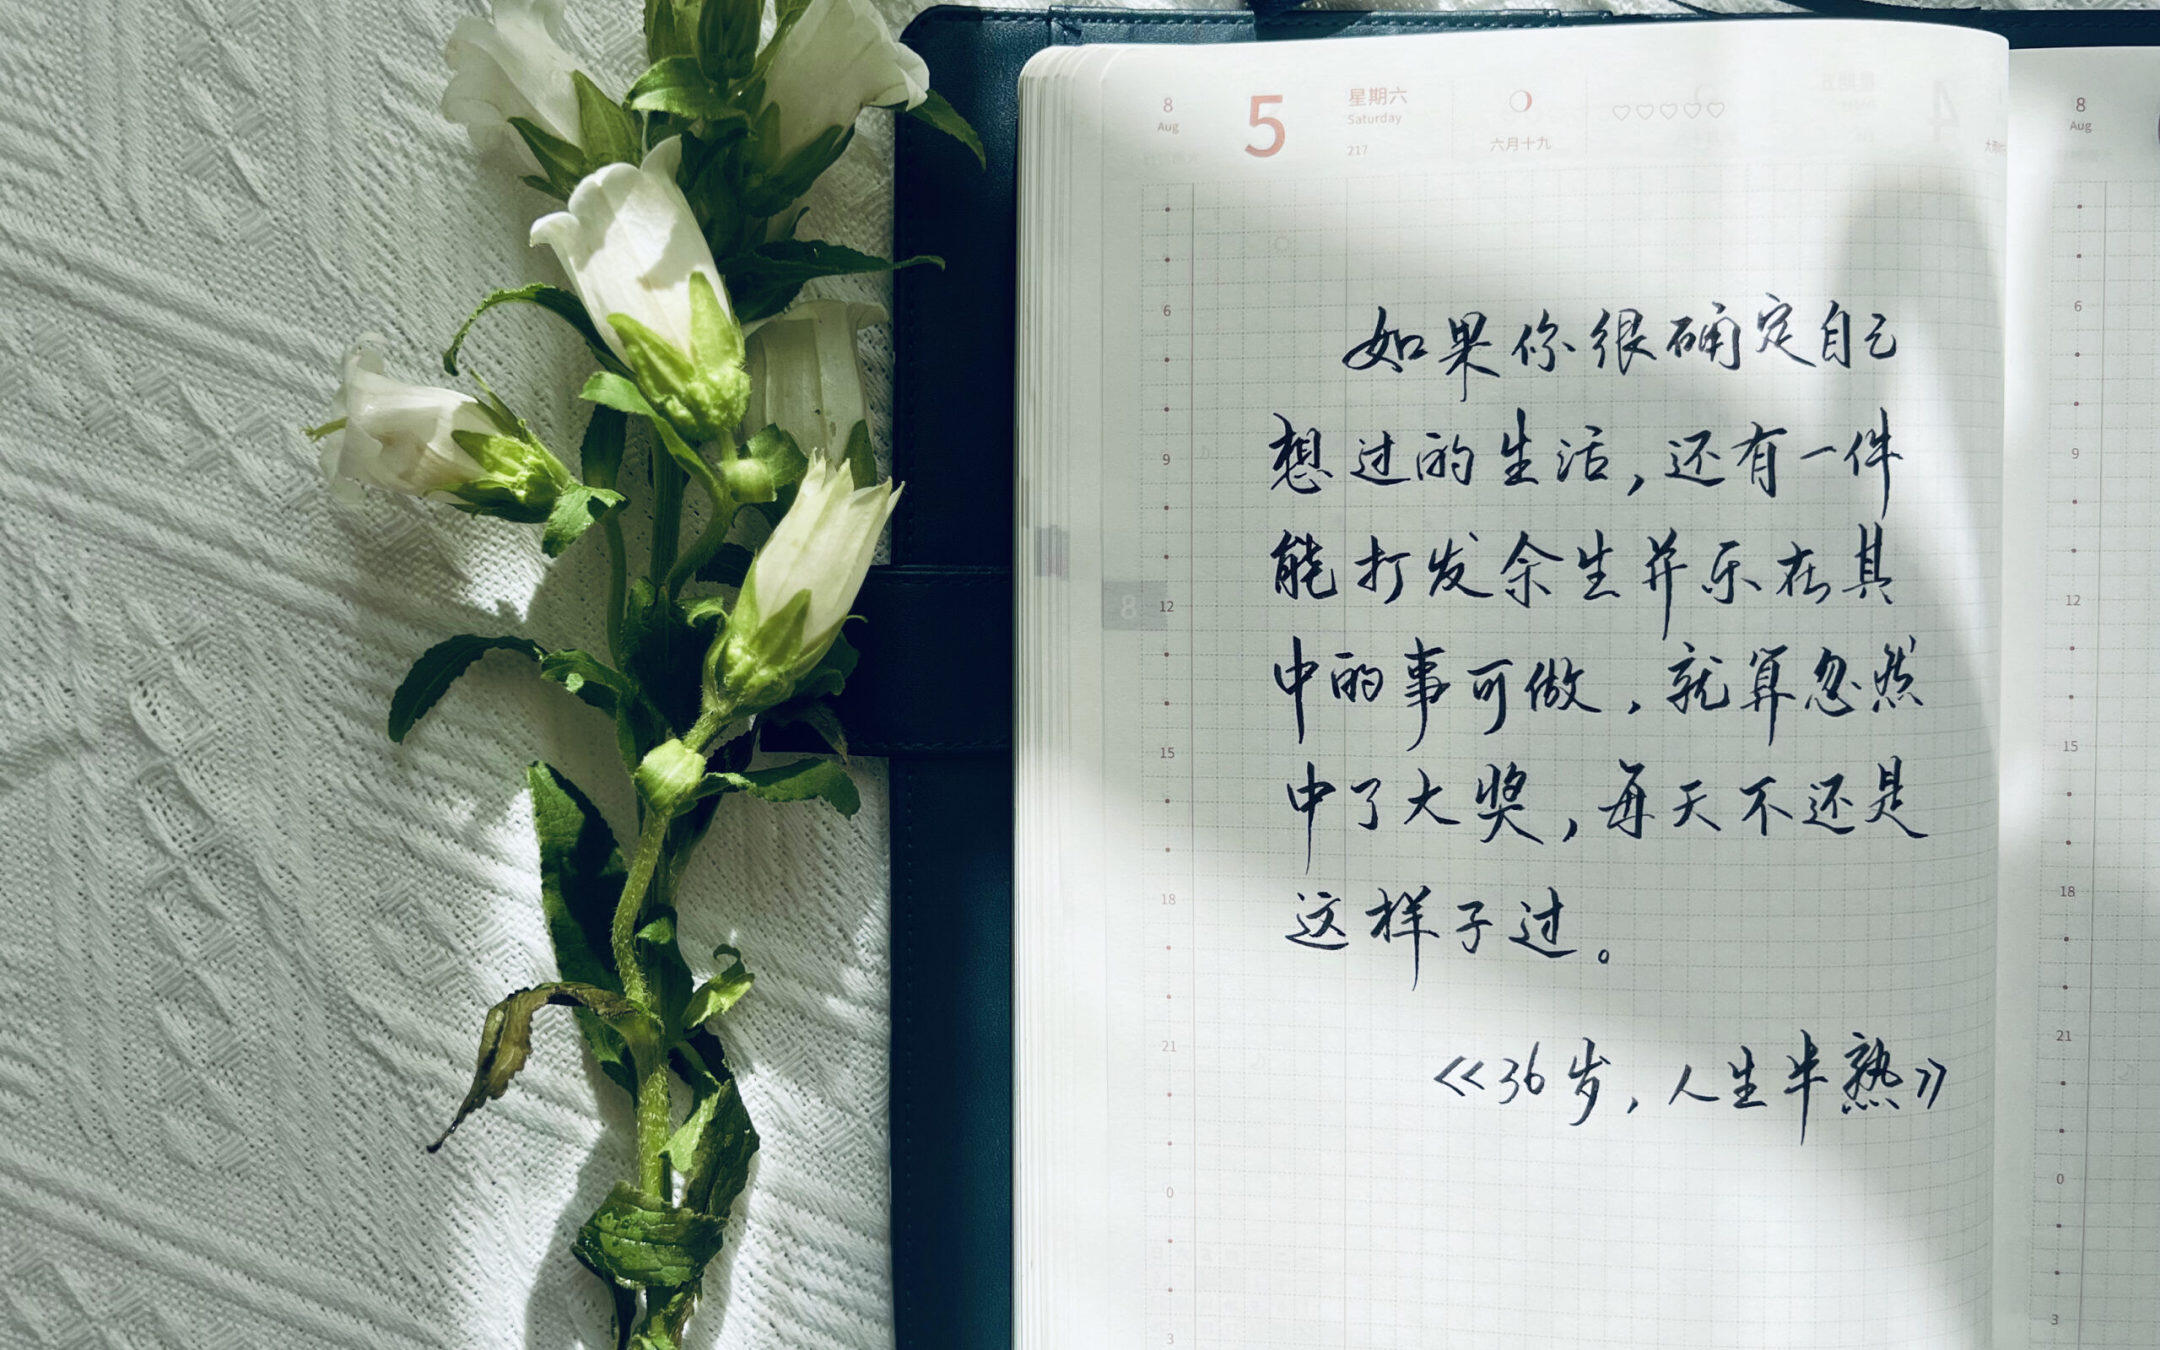 8
Aug
5
星期六
Saturday
217
六月十九
如果你很确定自己
想过的生活,还有一件
能打发余生并乐在其
中的事可做,就算忽然
中了大奖,每天不还是
这样子过。
《36岁,人生半熟》
6
9
12
15
18
21
0
3
8
8
Aug
6
9
12
15
18
21
0
3